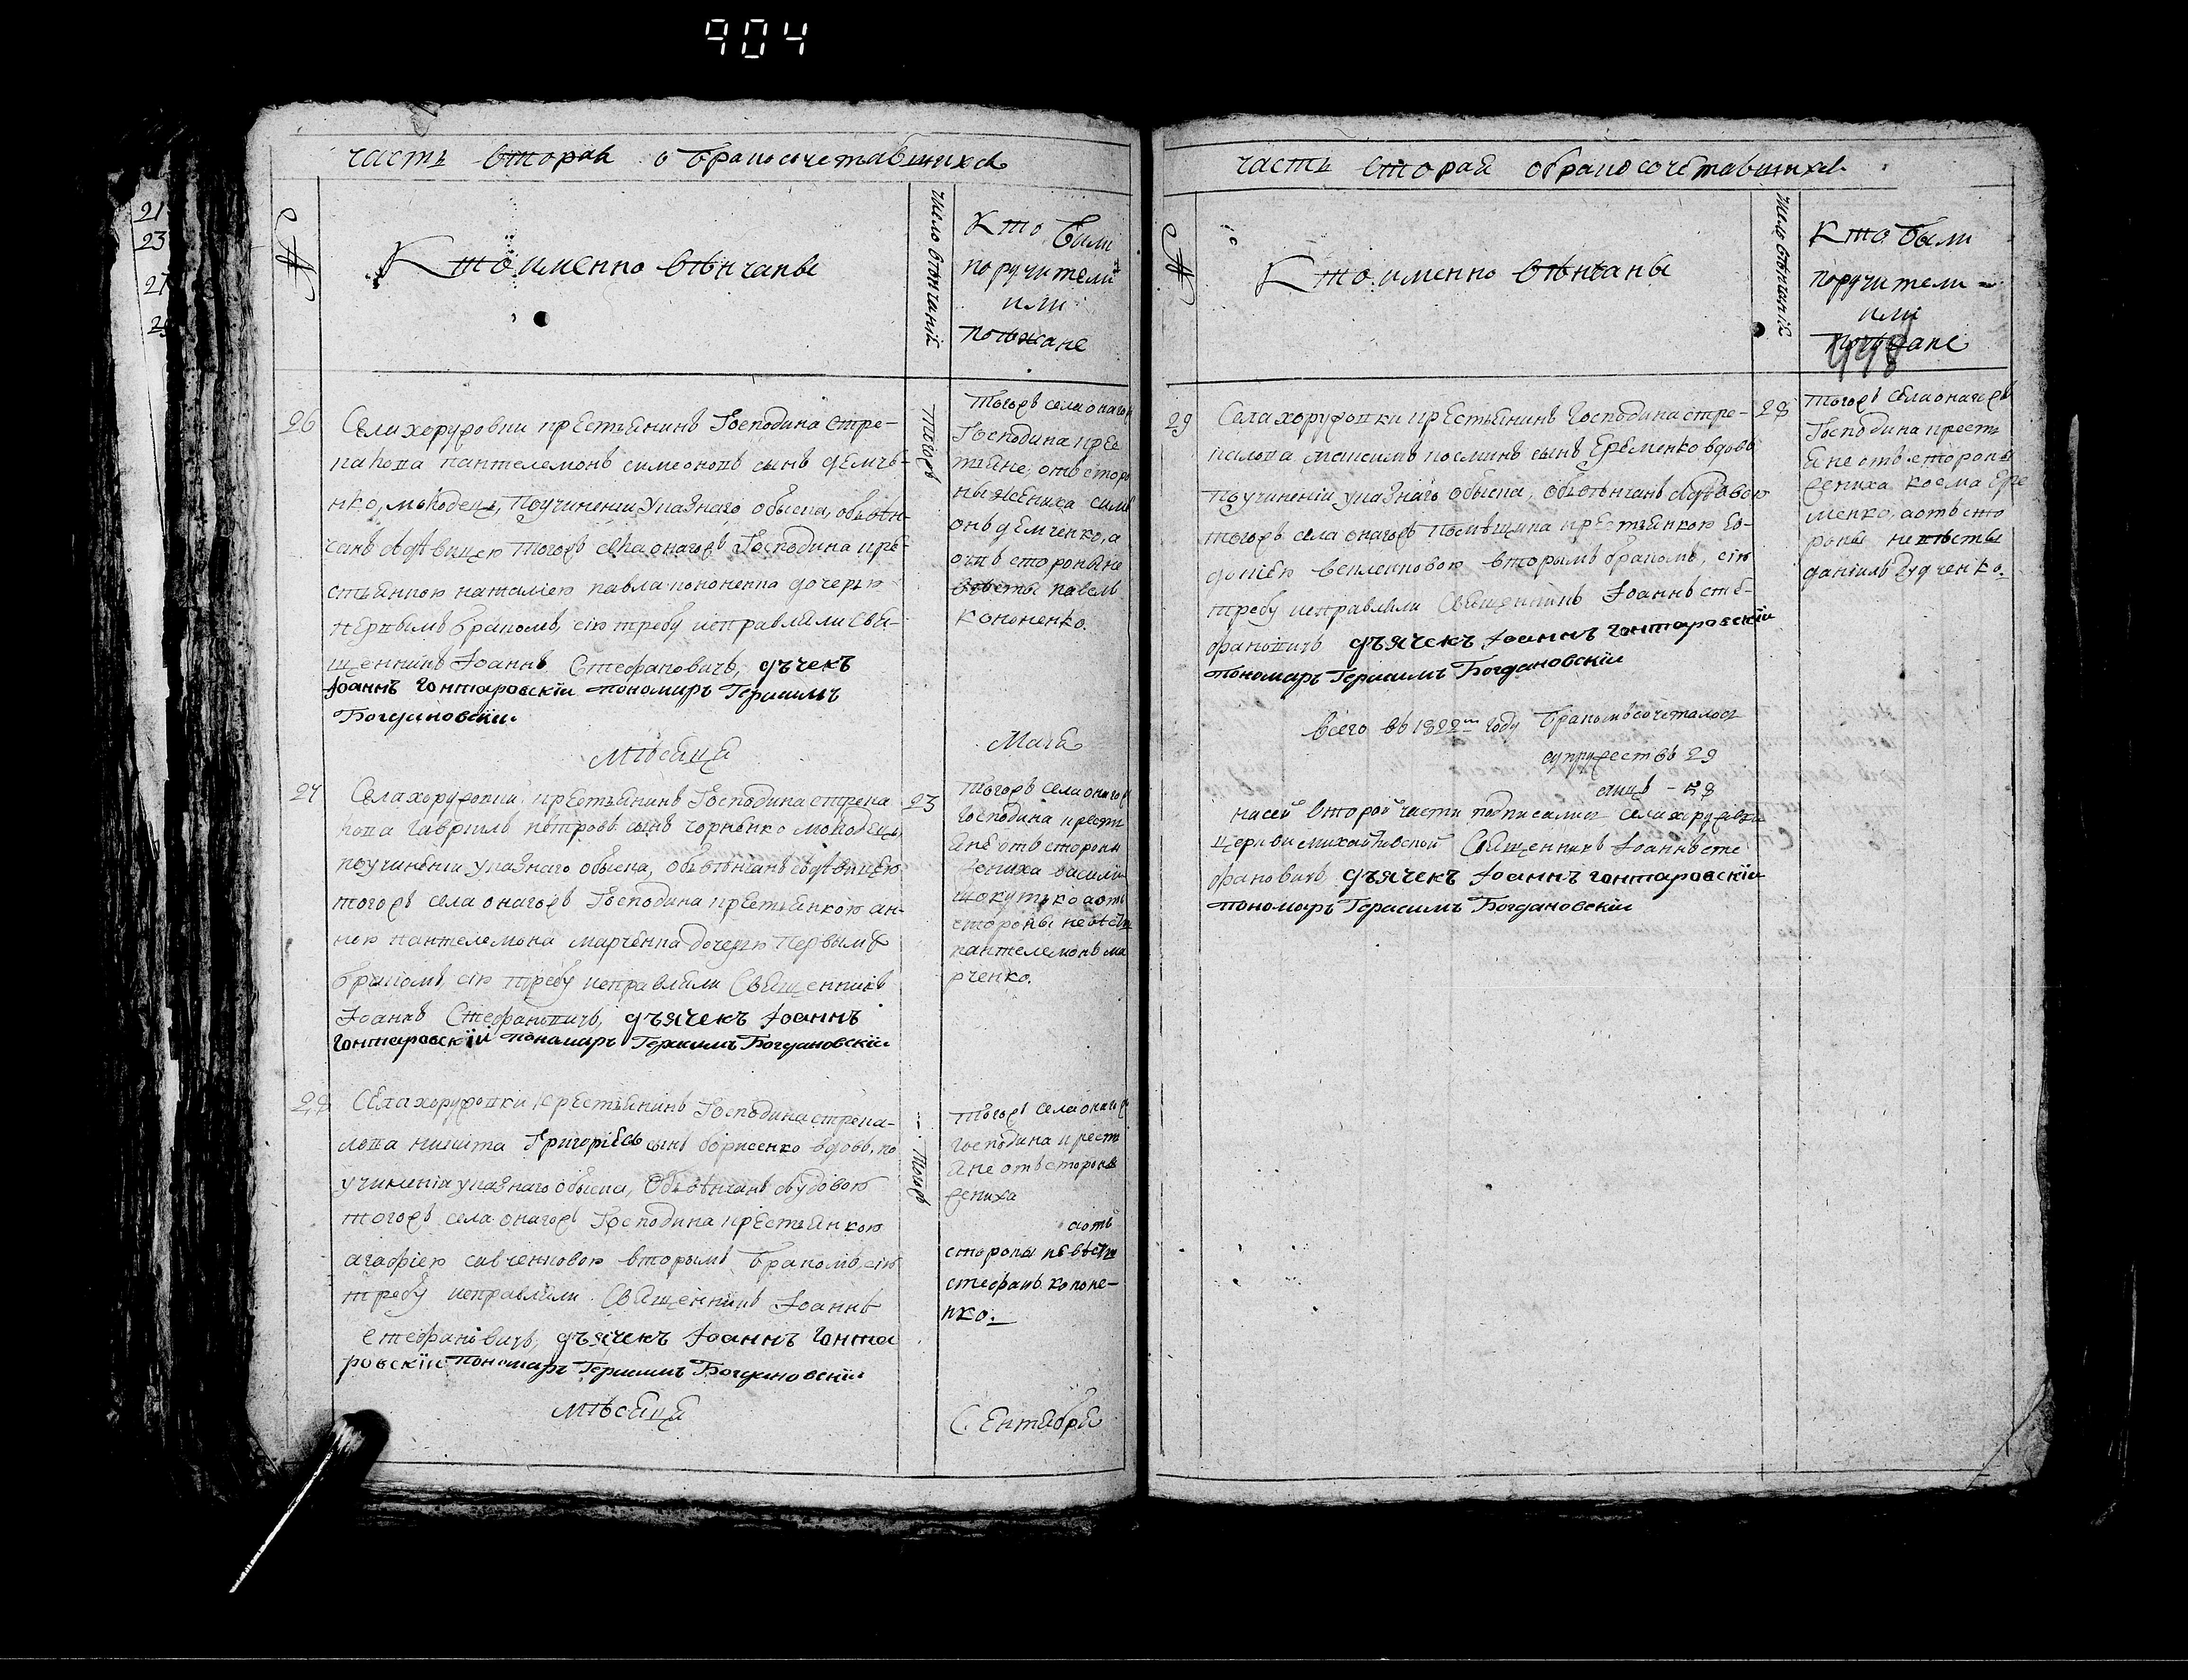 904
21
23
27
часть вторая о бракосочетавшихся
№
Кто именно вѣнчаны
число вѣнчаній
Кто были
поручители
или
поѣжане
26
Села хоружовки крестьянинъ Господина стре-
калова пантелемонъ симеоновъ сынъ демче-
нко, молодецъ, по учиненіи указнаго обыска, объвѣн-
чанъ з дѣвицею тогожъ села онагожъ Господина кре-
стьянкою наталіею павла кононенка дочерью
первымъ бракомъ, сію требу исправляли Свя-
щенникъ Іоаннъ Стефановичъ, дьчекъ
Іоаннъ Гонтаровскій пономарь Герасимъ
Богдановскій
Тогожъ
тогожъ села онагожъ
Господина кре
тьяне, отъ сторо
ны жениха симе
онъ демченко, а
отъ стороны не
вѣсты павелъ
кононенко.
Мѣсяца
Маія
27
Села хоружовки крестьянинъ Господина стрека
лова Гавріилъ петровъ сынъ чорненко молодецъ
по учиненіи указнаго обыска, объвѣнчанъ здѣвицею
тогожъ села онагожъ Господина крестьянкою ан-
ною пантелемона марченка дочерью Первымъ
бракомъ, сію требу исправляли Священникъ
Іоаннъ Стефановичъ, дьячекъ Іоаннъ
Гонтаровскій пономарь Герасимъ Богдановскій
23
тогожъ села онагожъ
Господина крестя
яне отъ стороны
жениха василій
а отъ
стороны невѣсты
пантелемонъ ма
рченко.
28
Села хоружовки крестьянинъ Господина стрека-
лова никита Григоріевъ сынъ борисенко вдовъ, по
учиненіи указнаго обыска, объвѣнчанъ звдовою
тогожъ села онагожъ Господина крестьянкою
агафіею савченковою вторымъ бракомъ, сію
требу исправляли Священникъ Іоаннъ
Стефановичъ, дьячекъ Іоаннъ Гонта
ровскій пономарь Герасимъ Богдановскій
Тогожъ
тогожъ села онагожъ
Господина крестя
яне отъ стороны
жениха
а отъ
стороны невѣсты
стефанъ кононе-
нко.
Мѣсяца
Сентября
часть вторая о бракосочетавшихся
№
Кто именно вѣнчаны
число вѣнчаній
Кто были
поручители
или
поѣжане
29
Села хоружовки крестьянинъ Господина стре-
калова максимъ косминъ сынъ Еременко вдовъ
по учиненіи указнаго обыска, объвѣнчанъ здовою
тогожъ села онагожъ помѣщика крестьянкою Ев-
докіею вторымъ бракомъ, сію
требу исправляли Священникъ Іоаннъ сте-
фановичъ дьячекъ Іоаннъ Гонтаровскій
пономарь Герасимъ Богдановскій
28
тогожъ села онагожъ
Господина крестя
яне отъ стороны
жениха косма Ере
менко, а отъ сто
роны невѣсты
даніилъ дудченко.
Всего въ 1822м году бракомъ сочеталось
супружествъ 29
лицъ - 58
на сей второй части подписались села хоружовки
церкви михайловской Священникъ Іоаннъ сте
фановичъ, дьячекъ Іоаннъ Гонтаровскій
пономарь Герасимъ Богдановскій